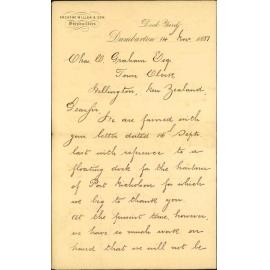 Dock Yard
ARCHD. McMILLAN & SON
Shipbuilders
Dumbarton 14 Nov. 1887
Chas. W. Graham Esq
Town Clerk
Wellington, New Zealand
Dear Sir,
We are favored with
your letter dated 16th Septr.
last with reference to a
floating dock for the harbour
of Port Nicholson for which
we beg to thank you.
At the present time, however,
we have so much work on
hand that we will not be